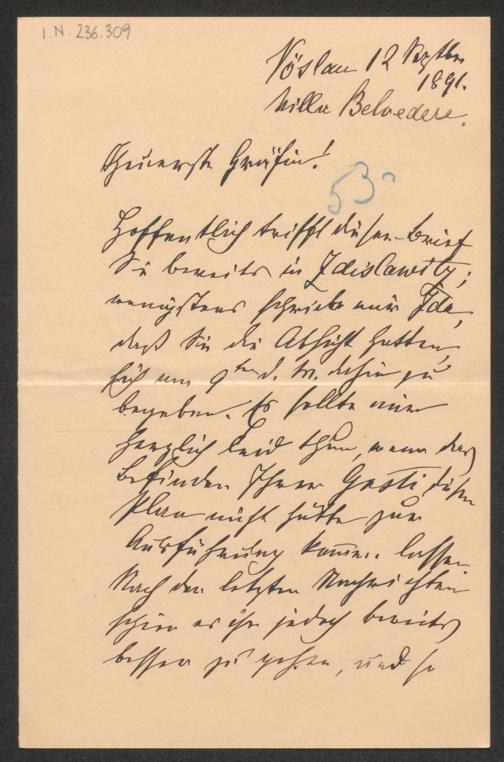 I.N. 236.309
Vöslau 12 Septbr
1891.
Villa Belvedere.
Theuerste Gräfin!
53
Hoffentlich trifft dieser Brief
Sie bereits in Zdislawitz;
wenigstens schrieb mir Ida,
daß Sie die Absicht hatten,
sich am 9ten d. M. dahin zu
begeben. Es sollte mir
herzlich leid thun, wenn das
Befinden Ihrer Gusti diesen
Plan nicht hätte zur
Ausführung kommen lassen.
Nach den letzten Nachrichten
schien es ihr jedoch bereits
besser zu gehen, und so